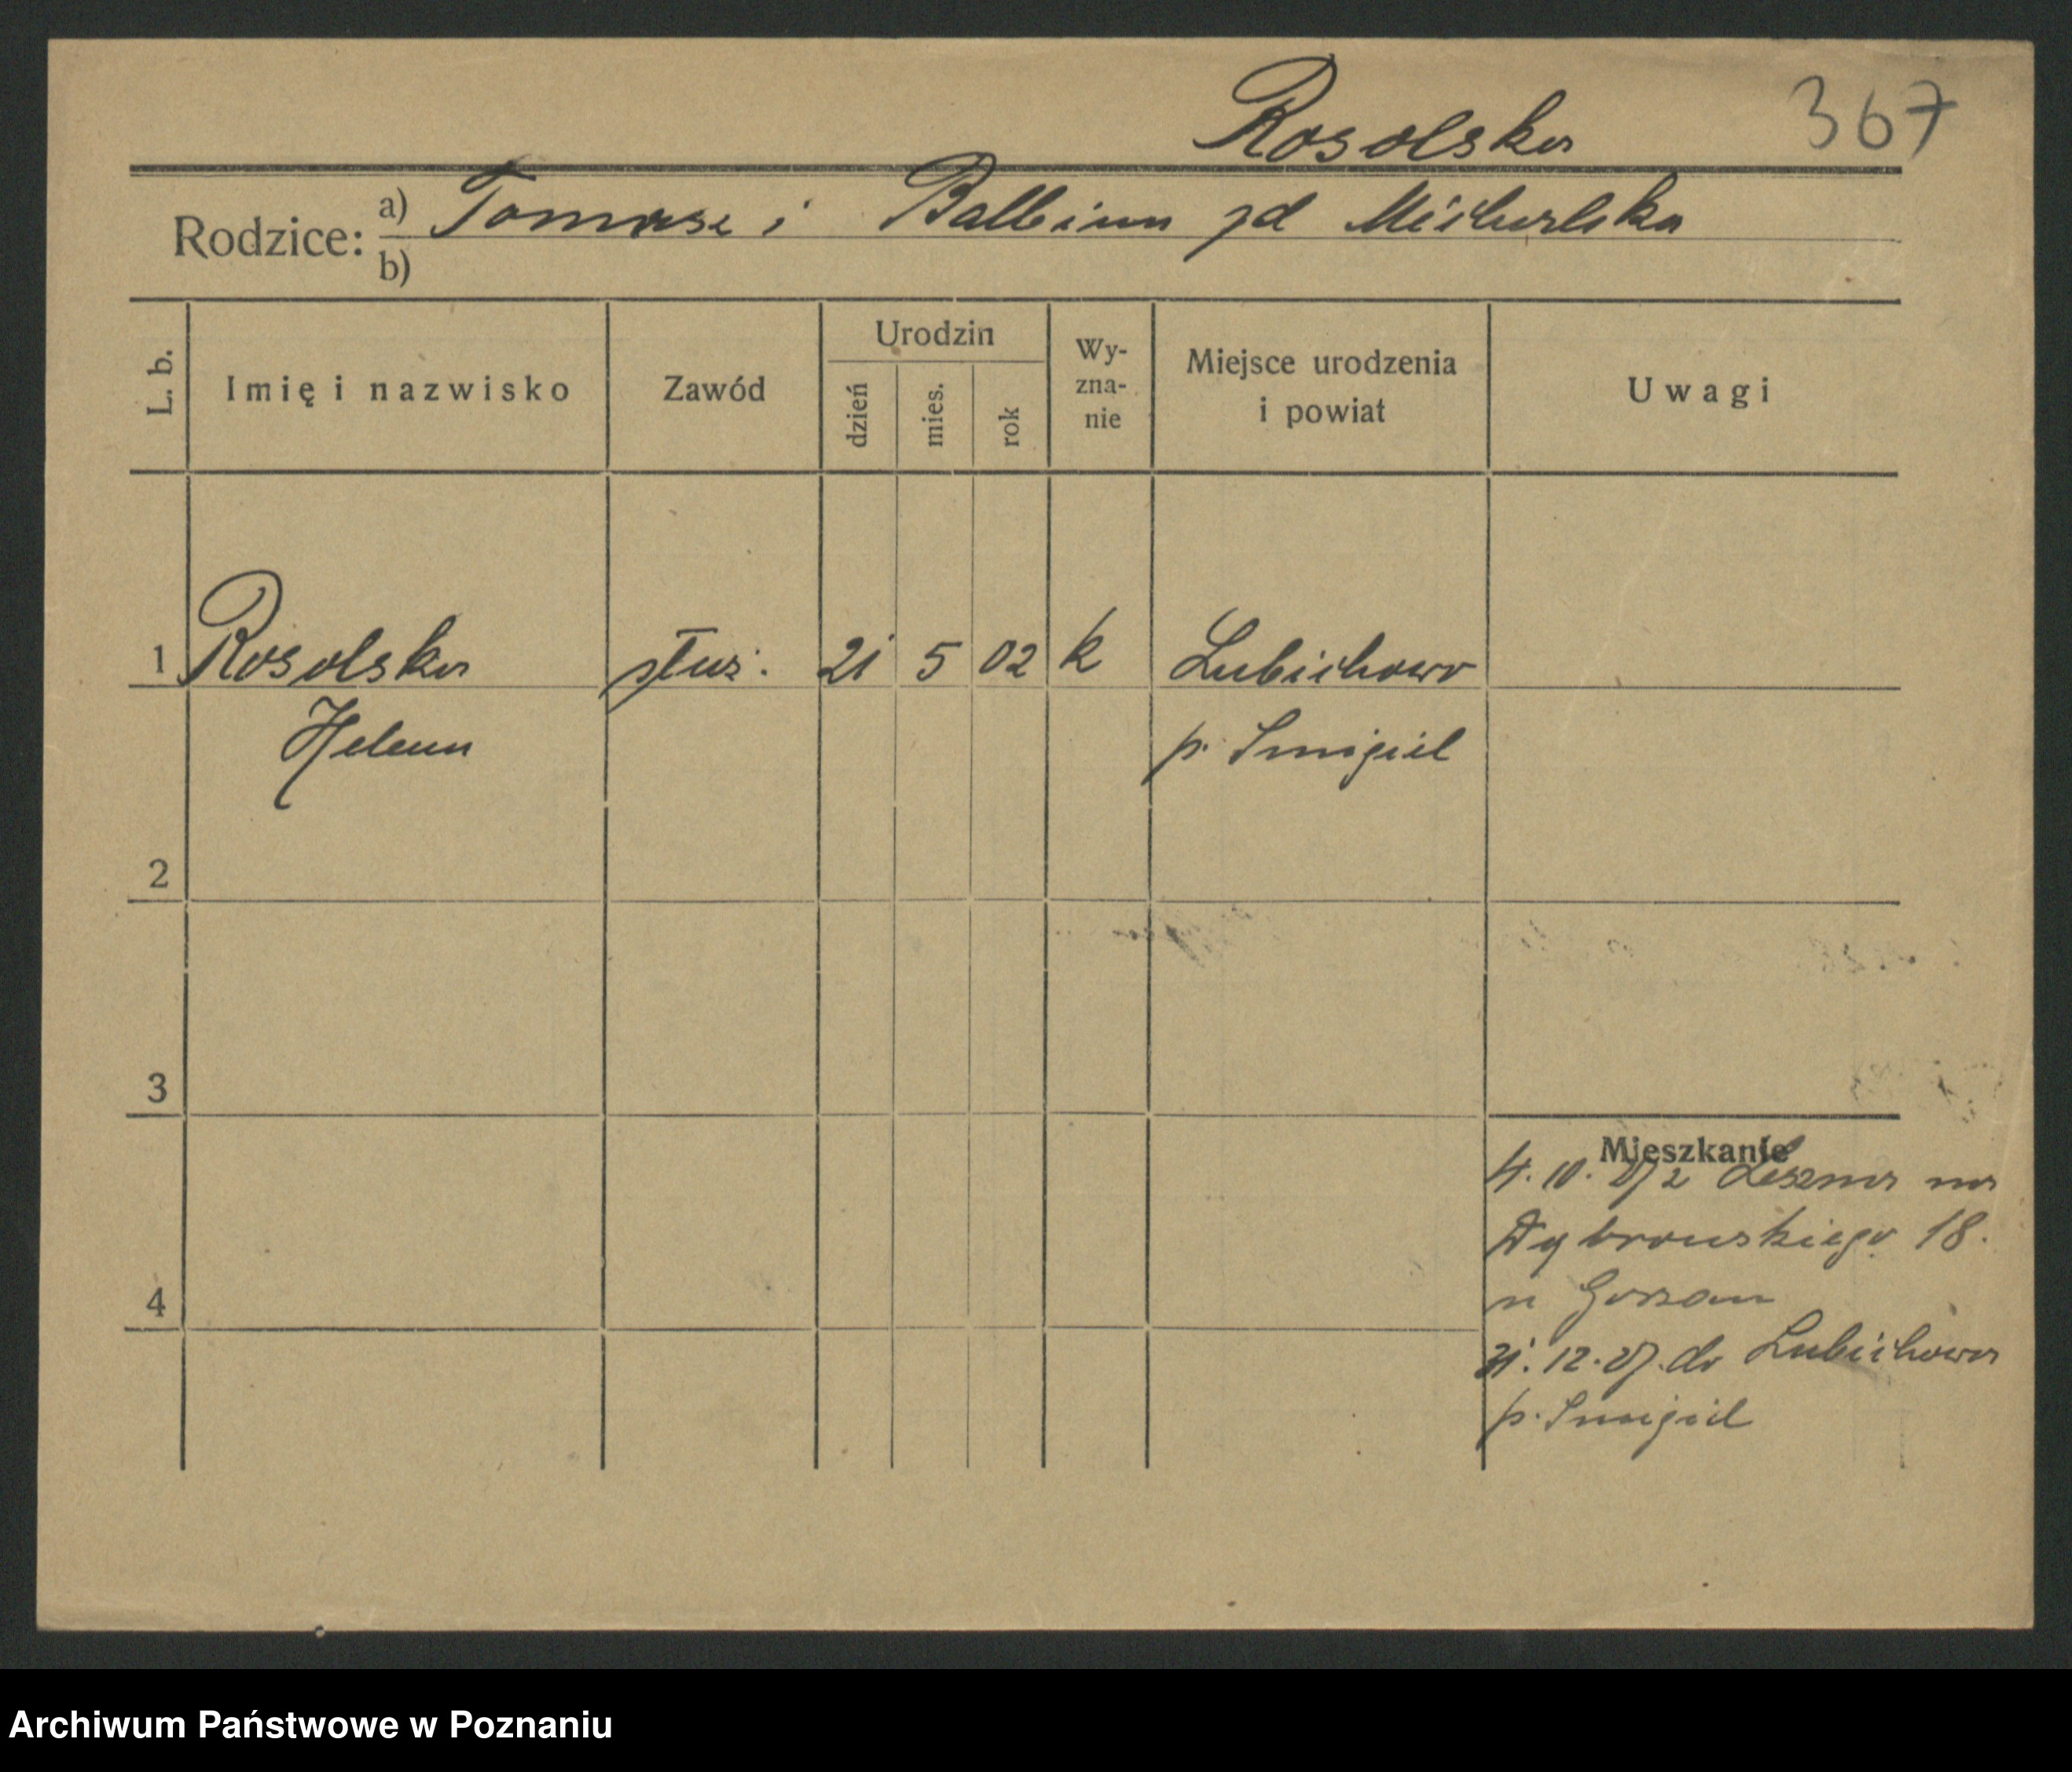 Rosolska 367
Rodzice: a) Tomasz i Balbina zd Michalska
b)
L. b. Imię i nazwisko Zawód Urodzin dzień mies. rok Wy-zna-nie Miejsce urodzenia i powiat Uwagi
1 Rosolska służ. 21 5 02 k Lubichowo
Helena p. Smigiel
2
3
Mieszkanie
4. 10. 27 z Leszna na
Dąbrowskiego 18.
4
u
31. 12. 27. do Lubichowa
p. Smigiel
Archiwum Państwowe w Poznaniu